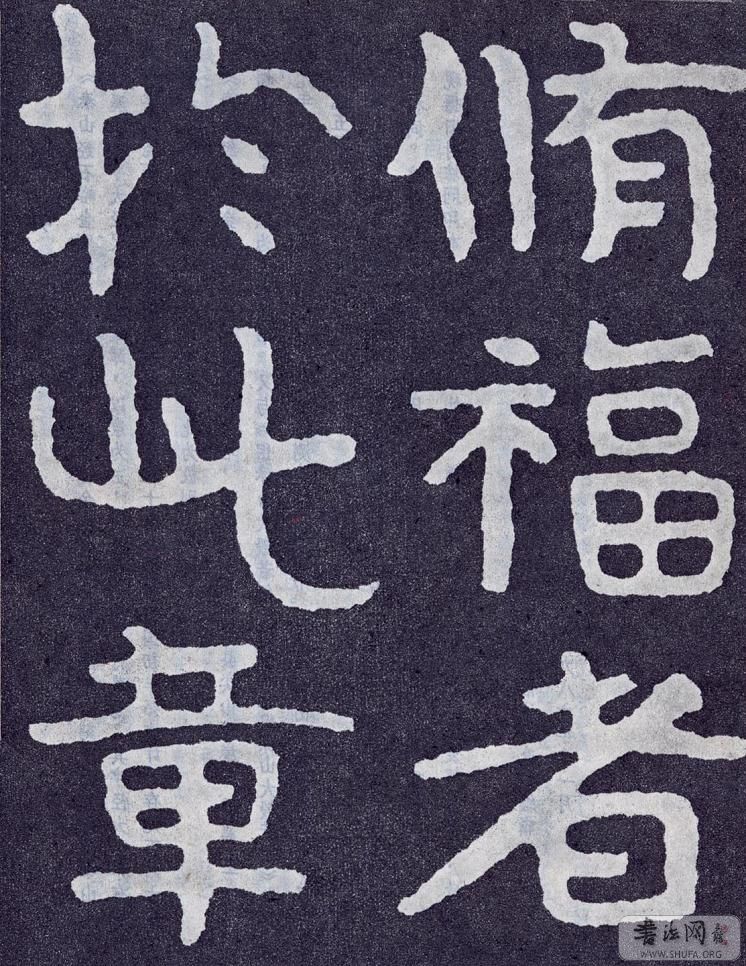 脩福者
於此章
書法网
WWW.SHUFA.ORG